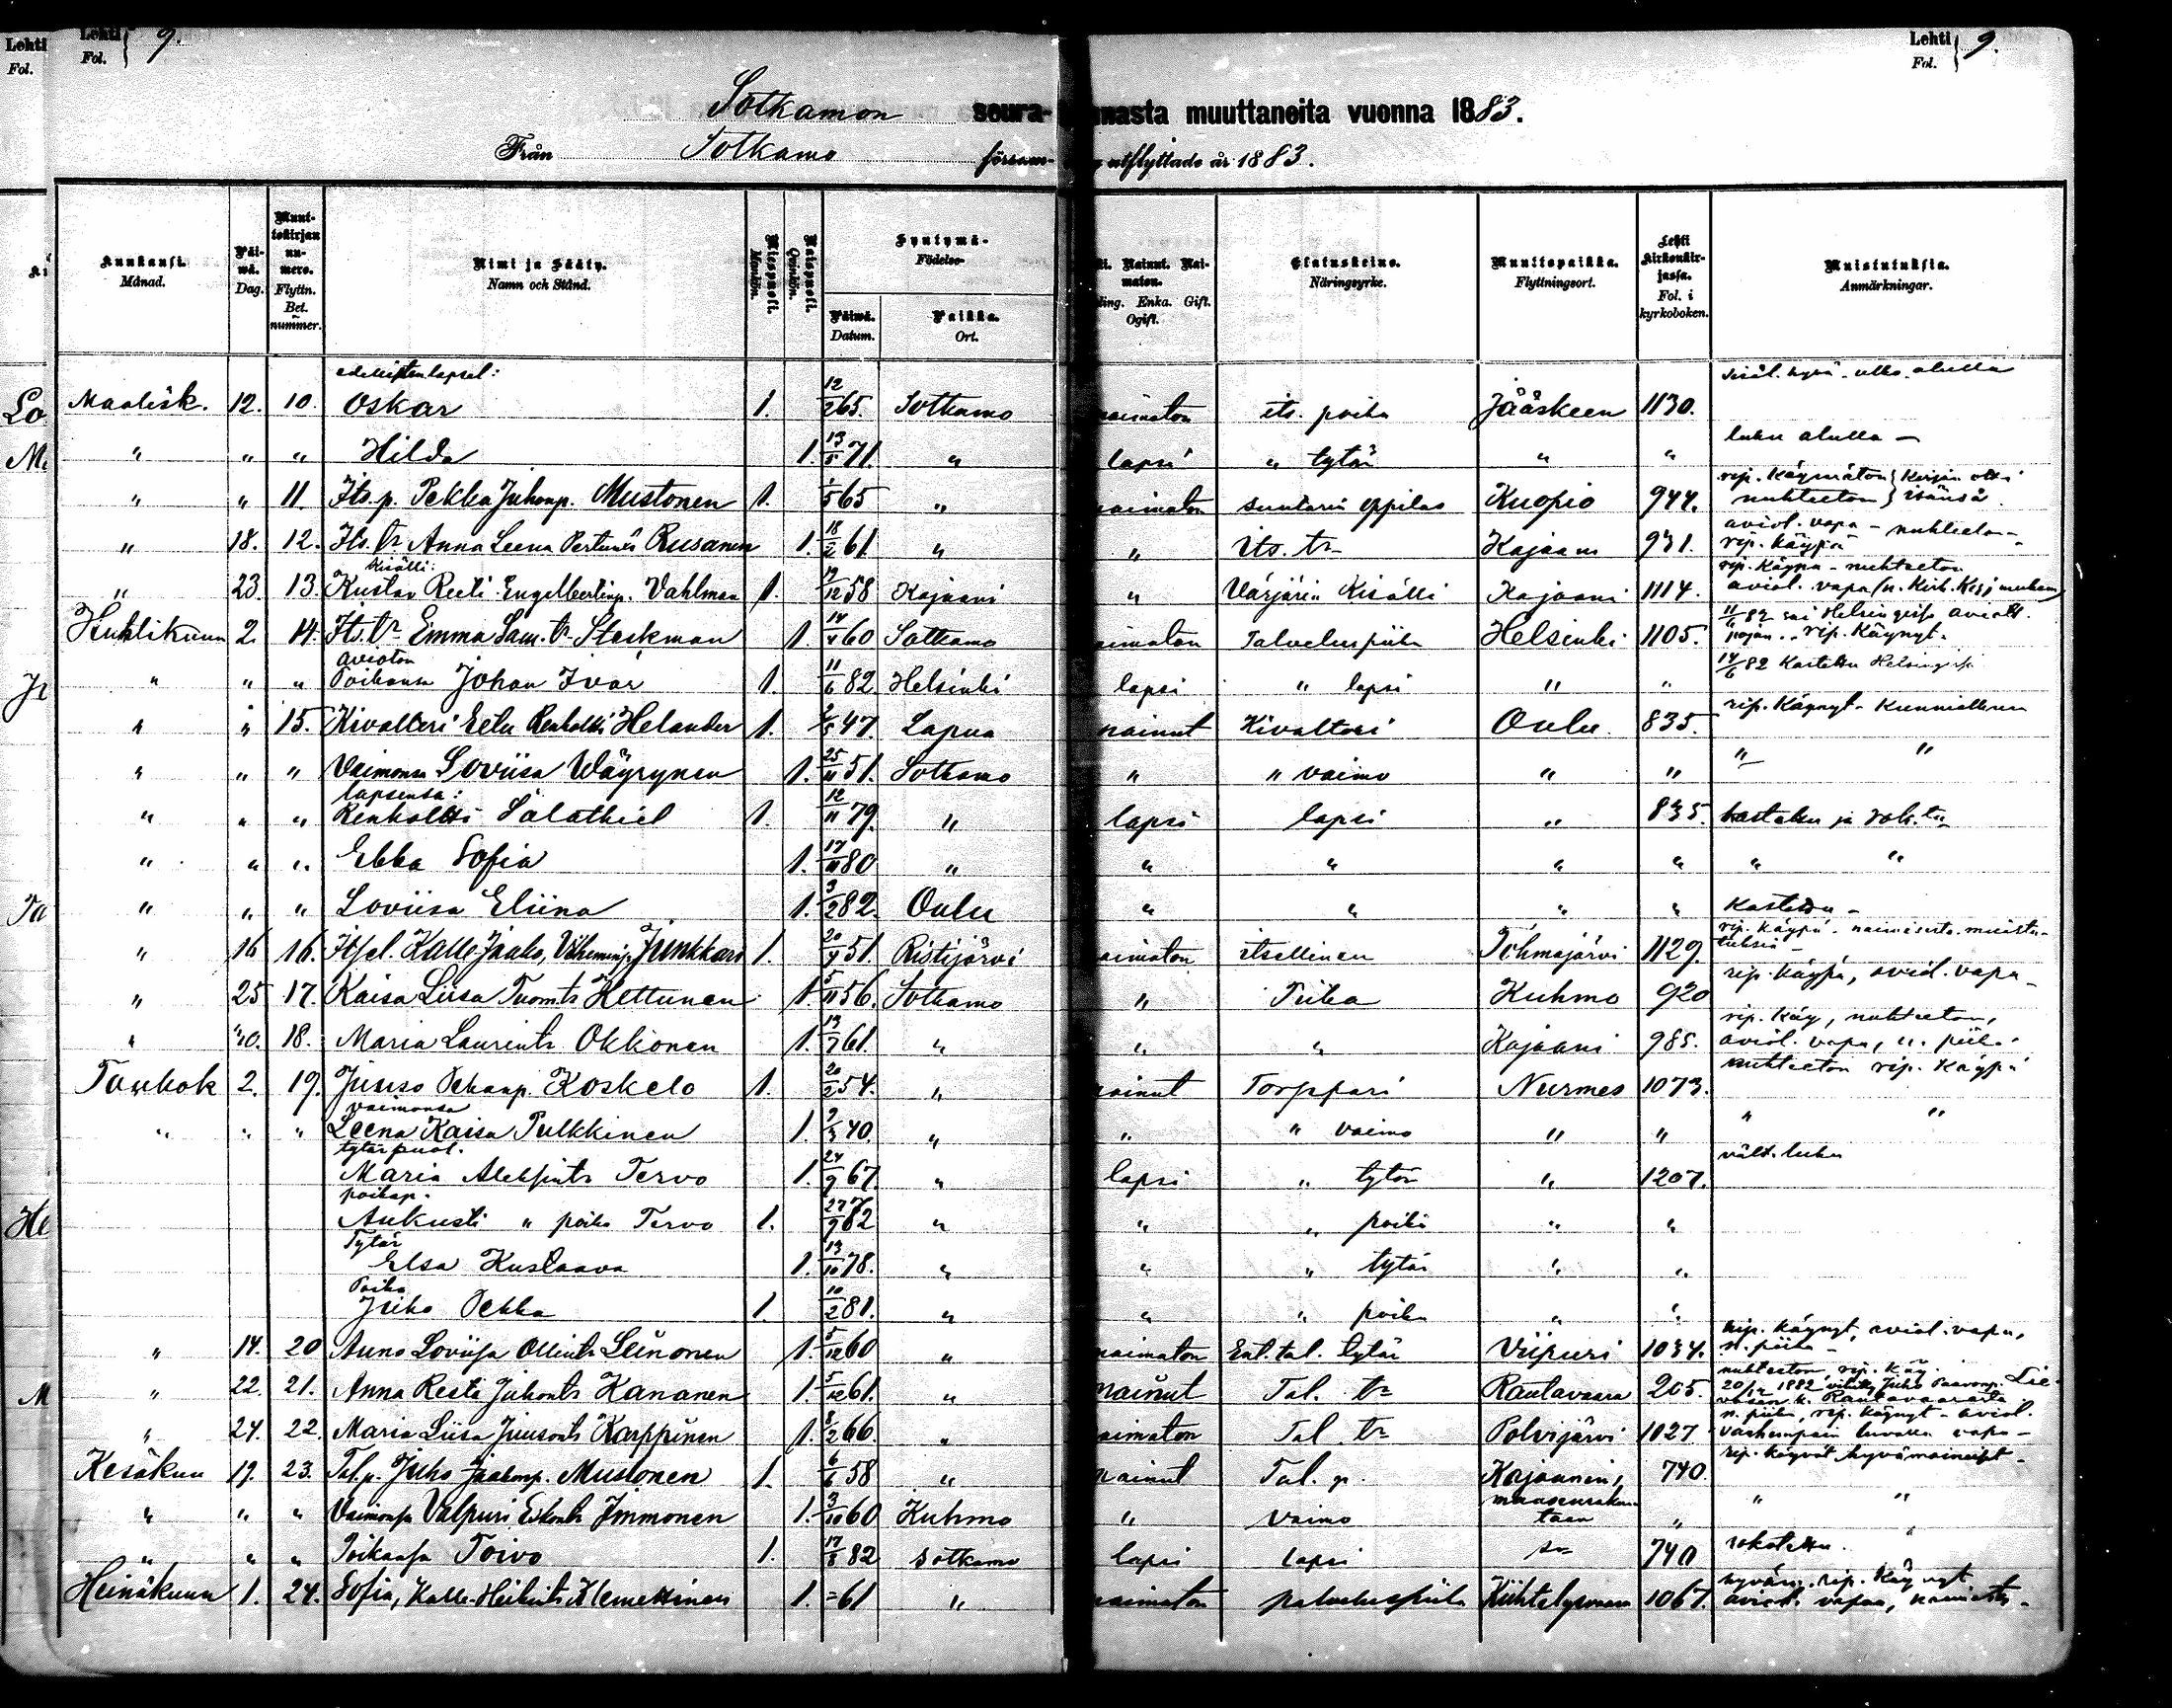 Lehti Fol. Lehti Fol. } 9. Lehti Fol. } 9.
Sotkamon seura- nnasta muuttaneita vuonna 1883.
Från Sotkamo försam- utflyttade år 1883.
Kuukausi. Månad. Päi- wä. Dag. Muut- tokirjan nu- mero. Flyttn. Bet. nummer. Nimi ja Sääty. Namn och Stånd. Miespuoli. Mankön. Naispuoli. Qvinkön. Syntymä- Födelse- Päiwä. Datum. Paikka. Ort. Nainut. Nai- maton. Enka. Gift. Ogift. Elatuskeino. Näringsyrke. Muuttopaikka. Flyttningsort. Lehti kirkonkir- jassa. Fol. i kyrkoboken. Muistutuksia. Anmärkningar.
edellisten lapset:
Maalisk. 12. 10. Oskar 1. 12/2 65. Sotkamo naimaton its. poika Jääskeen 1130. sisäl. hyvä - ulko. alulla
" " " Hilda 1. 13/5 71. " lapsi " tytär " " luku alulla -
" " 11. Its. p. Pekka Juhonp. Mustonen 1. 1/5 65 " naimaton suutarin oppilas Kuopio 944. rip. käymätön } kirjan otti nuhteeton } isänsä.
" 18. 12. Its. tr Anna Leena Pertunts Rusanen 1. 18/2 61 " " its. tr Kajaani 931. aviol. vapa - nuhteeton - rip. käypä
Kisälli:
" 23. 13. Kustav Reeti Engelbertinp. Vahlman 1. 17/12 58 Kajaani " Värjärin Kisälli Kajaani 1114. rip. käypä - nuhteeton aviol. vapa
Huhtikuun 2. 14. It. tr Emma Sam. tr Steckman 1. 14/4 60 Sotkamo naimaton Palveluspiika Helsinki 1105. 11/6 82 sai Helsingissä aviott. pojan. rip. käynyt.
avioton
" " " Poikansa Johan Ivar 1. 11/6 82. Helsinki lapsi " lapsi " " 14/6 82 Kastettu Helsingissä
" " 15. Kivalteri Eetu Renholtti Helander 1. 2/5 47. Lapua nainut Kivalteri Oulu 835. rip. käynyt -
" " " Vaimonsa Loviisa Wäyrynen 1. 25/11 51. Sotkamo " " vaimo " " " "
lapsensa:
" " " Renholtti Salathiel 1. 12/11 79. " lapsi lapsi " 835. kastettu ja rok.tu
" " " Ebba Sofia 1. 17/11 80 " " " " " " "
" " " Loviisa Eliina 1. 3/2 82. Oulu " " " " Kastettu -
" 16 16. Itsel. Kalle Jaako, Junkkari 1. 20/4 51. Ristijärvi naimaton itsellinen Tohmajärvi 1129. rip. käypä - naimisesta muistu- tuksia -
" 25 17. Kaisa Liisa Tuomts Hettunen 1. 5/11 56. Sotkamo " Piika Kuhmo 920 rip. käypä, aviol. vapa -
" 30. 18. Maria Laurints Okkonen 1. 13/7 61. " " " Kajaani 985. rip. käy, nuhteeton, aviol. vapa, piika
Toukok 2. 19. Juuso Pekanp. Koskelo 1. 20/2 54. " nainut Torppari Nurmes 1073. nuhteeton rip. käypä
vaimonsa
" " " Leena Kaisa Pulkkinen 1. 7/3 40. " " " vaimo " " " "
tytärpuol.
Maria Aleksints Tervo 1. 24/9 67. " lapsi " tytär " 1207. vält. luku
poikap.
Aukusti " poika Tervo 1. 27/9 72 " " " poika " "
Tytär
Elsa Kustaava 1. 13/10 78. " " " tytär " "
Poika
Juho Pekka 1. 10/2 81. " " " poika " "
" 14. 20 Anna Loviisa Ollints Leinonen 1. 5/12 60 " naimaton Ent. tal. tytär Viipuri 1034. rip. käynyt, aviol. vapa, n. piika -
" 22. 21. Anna Reeta Juhonts Kananen 1. 5/12 61. " nainut Tal. tr Rautavaara 205. nuhteeton, rip. käy. 20/12 1882 vihitty Juho Paavonp. Lie- Rautavaarasta
" 24. 22. Maria Liisa Juusonts Karppinen 1. 8/2 66. " naimaton Tal. tr Polvijärvi 1027. n. piika, rip. käynyt - aviol. vanhempain luvalla vapa -
Kesäkuu 19. 23. Tal. p. Juho Jaakonp. Mustonen 1. 6/6 58 " nainut Tal. p. Kajaanin, 740. rip. käyvät hyvämaineiset -
" " " Vaimonsa Valpuri Eskonts Immonen 1. 3/10 60 Kuhmo " Vaimo maaseurakun- taan " " "
" " " Poikansa Toivo 1. 17/8 82 Sotkamo lapsi lapsi 740 rokotettu.
Heinäkuun 1. 24. Sofia, Kalle-Heikints Klemettinen 1. = 61 " naimaton palveluspiika Kiihtelysvaara 1067. rip. käynyt aviol. vapaa,